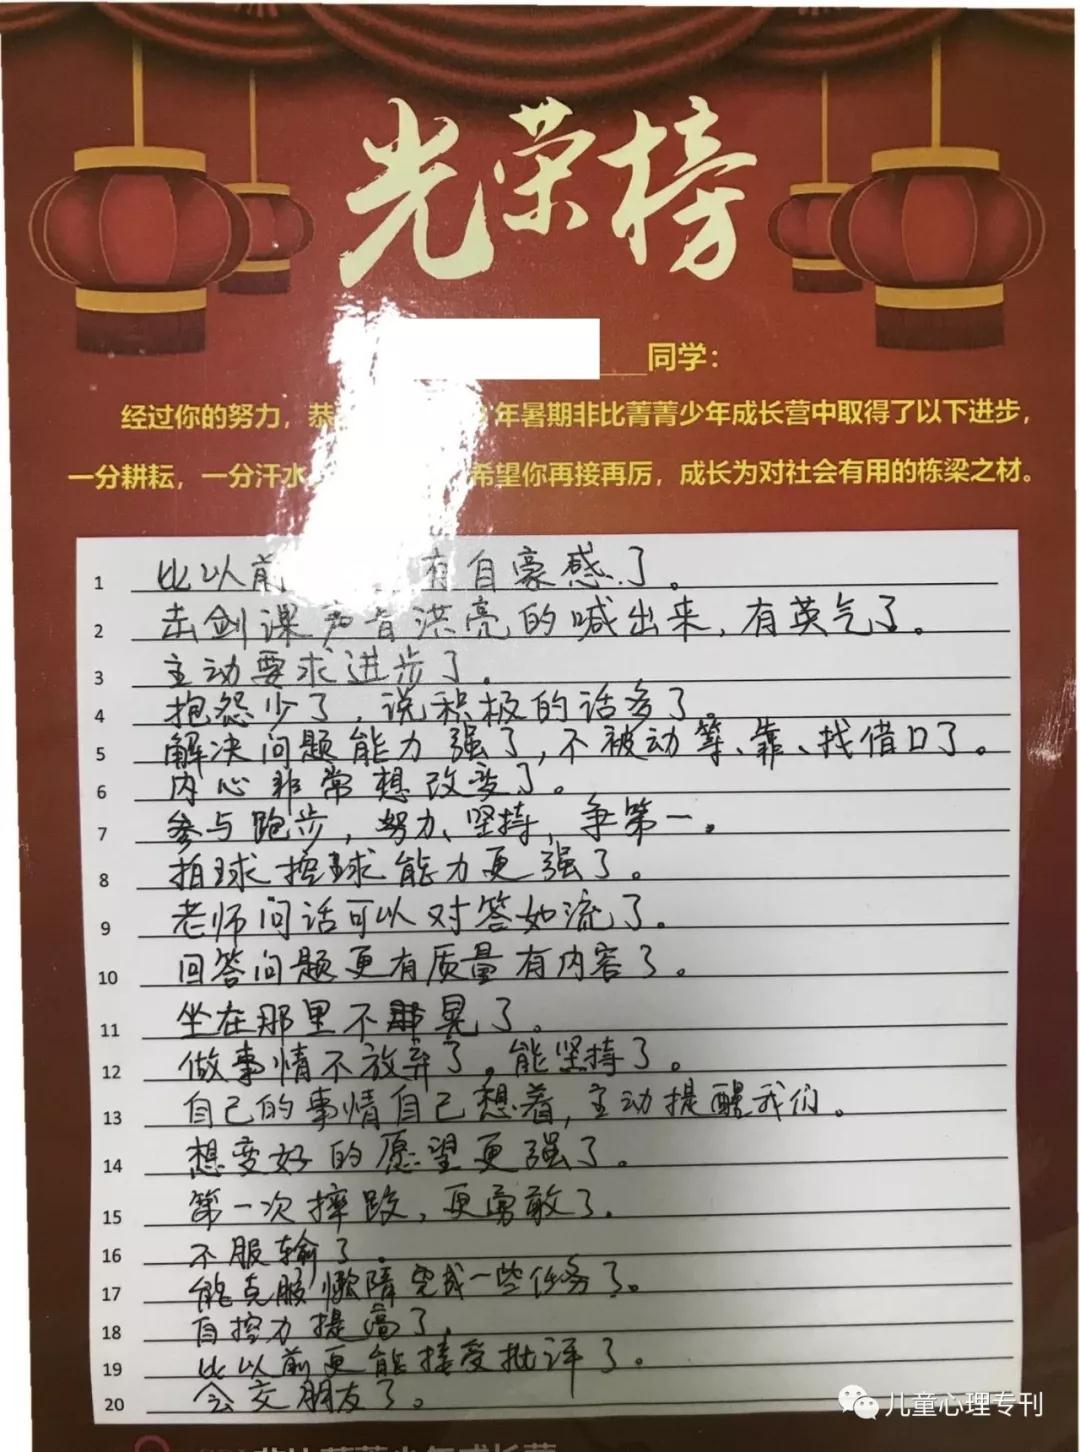 光荣榜
同学：
经过你的努力，恭 年暑期非比菁菁少年成长营中取得了以下进步，
一分耕耘，一分汗水 希望你再接再厉，成长为对社会有用的栋梁之材。
1 比以前 有自豪感了。
2 击剑课声音洪亮的喊出来，有英气了。
3 主动要求进步了。
4 抱怨少了，说积极的话多了。
5 解决问题能力强了，不被动等、靠、找借口了。
6 内心非常想改变了。
7 参与跑步，努力、坚持，争第一。
8 拍球控球能力更强了。
9 老师问话可以对答如流了。
10 回答问题更有质量有内容了。
11 坐在那里不晃了。
12 做事情不放弃了。能坚持了。
13 自己的事情自己想着，主动提醒我们。
14 想变好的愿望更强了。
15 第一次摔跤，更勇敢了。
16 不服输了。
17 能克服懒惰完成一些任务了。
18 自控力提高了。
19 比以前更能接受批评了。
20 会交朋友了。
儿童心理专刊